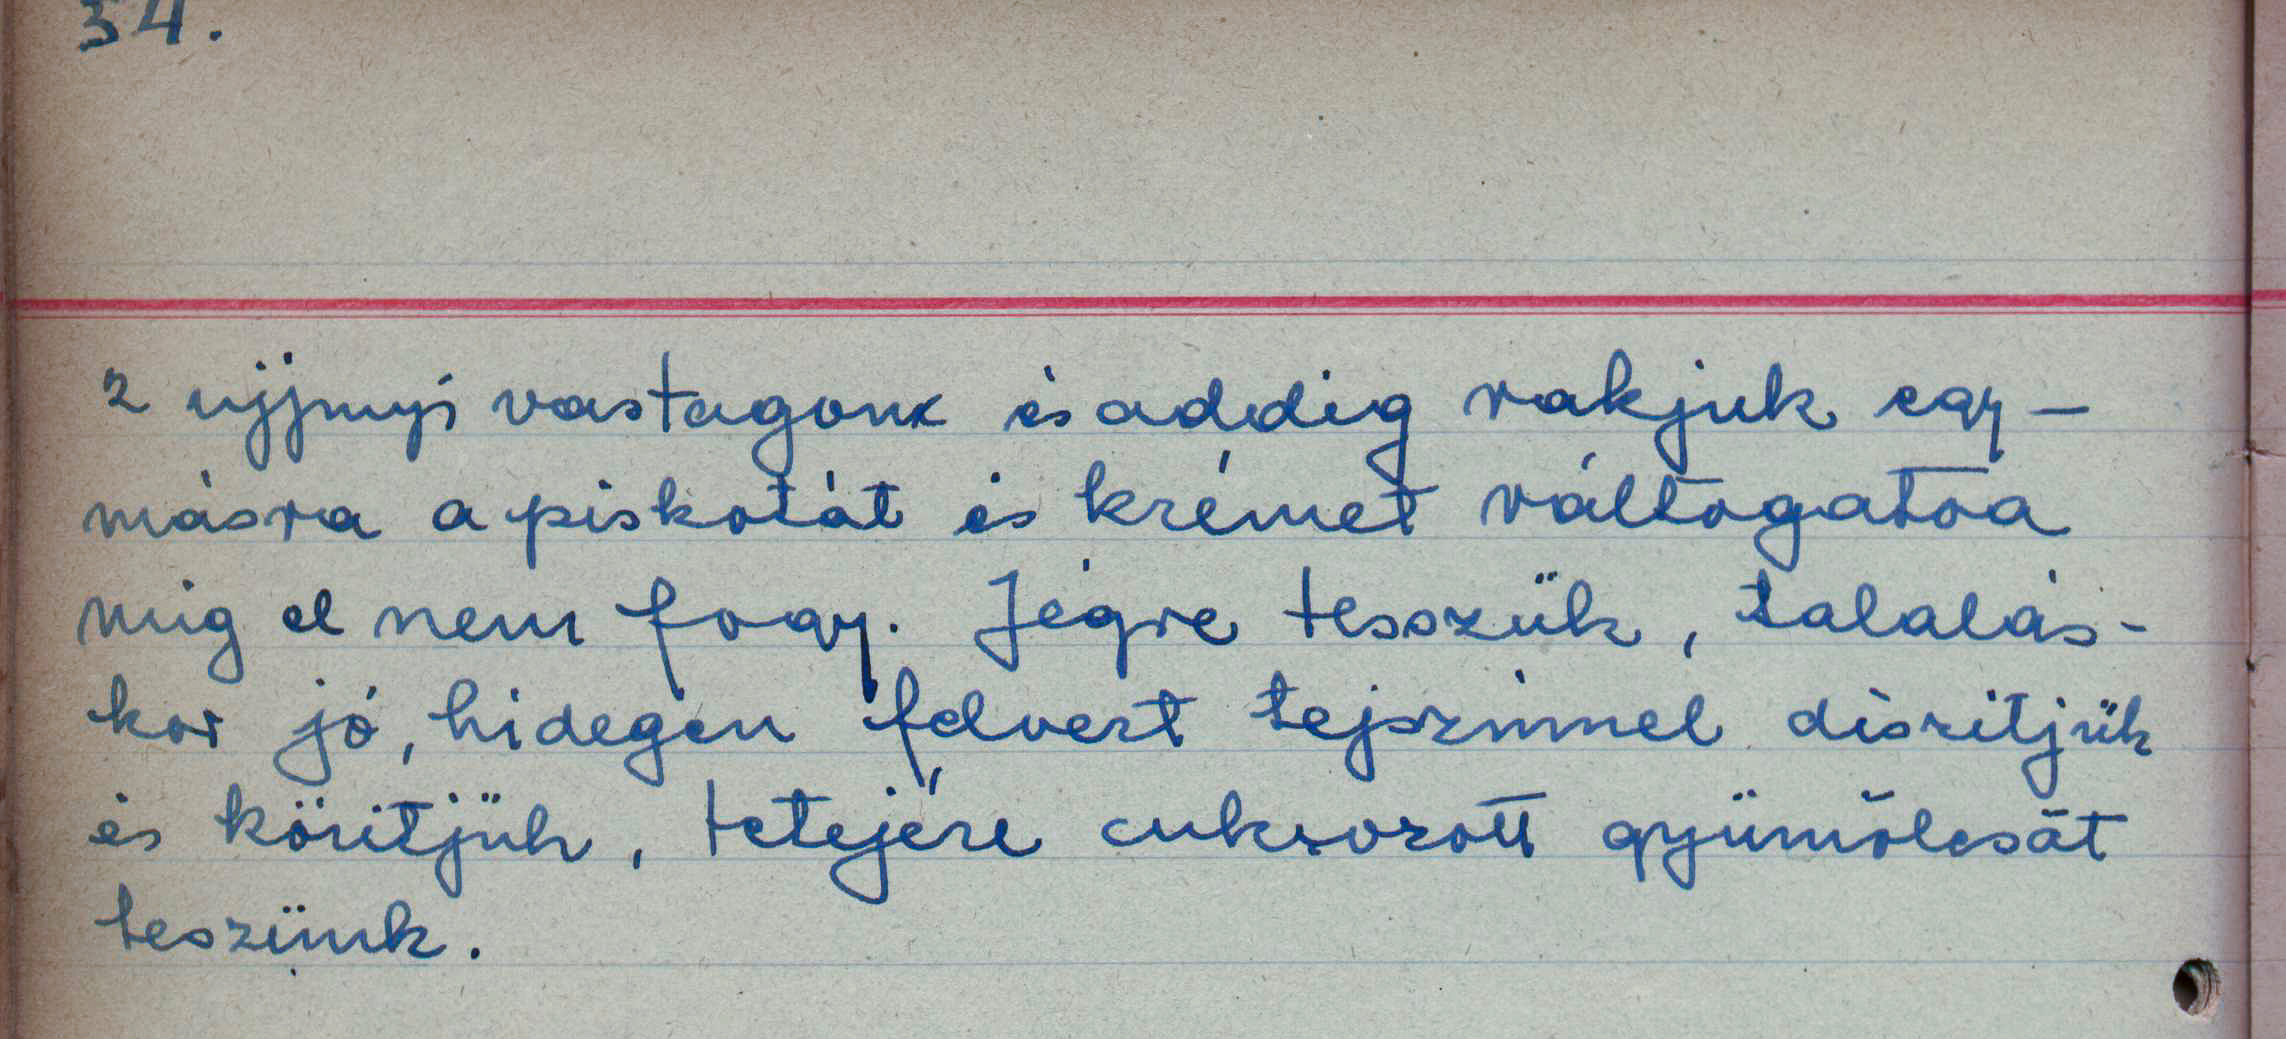 34.
2 ujjnyi vastagon és addig rakjuk egy-
másra a piskotát és krémet váltogatva
mig el nem fogy. Jégre tesszük, talalás-
kor jó, hidegen felvert tejszinnel diszitjük
és köritjük, tetejére cukrozott gyümölcsöt
teszünk.